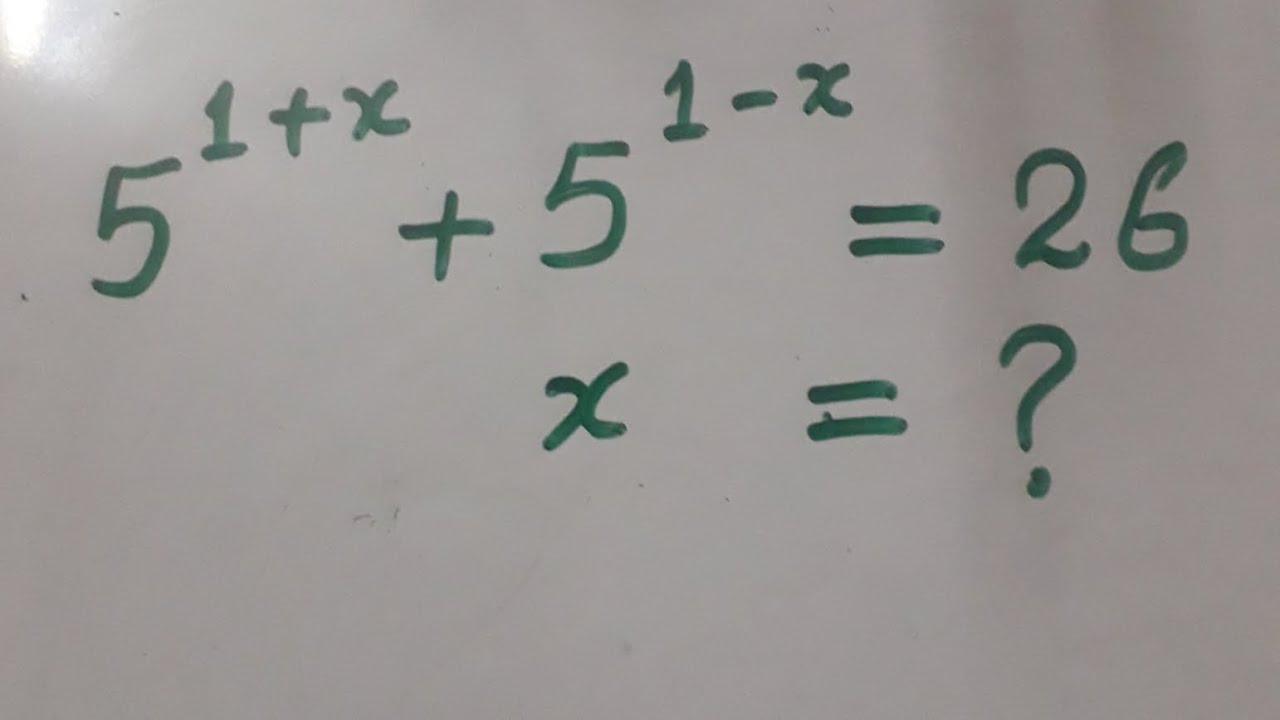 5^{1+x} + 5^{1-x} = 26
x = ?